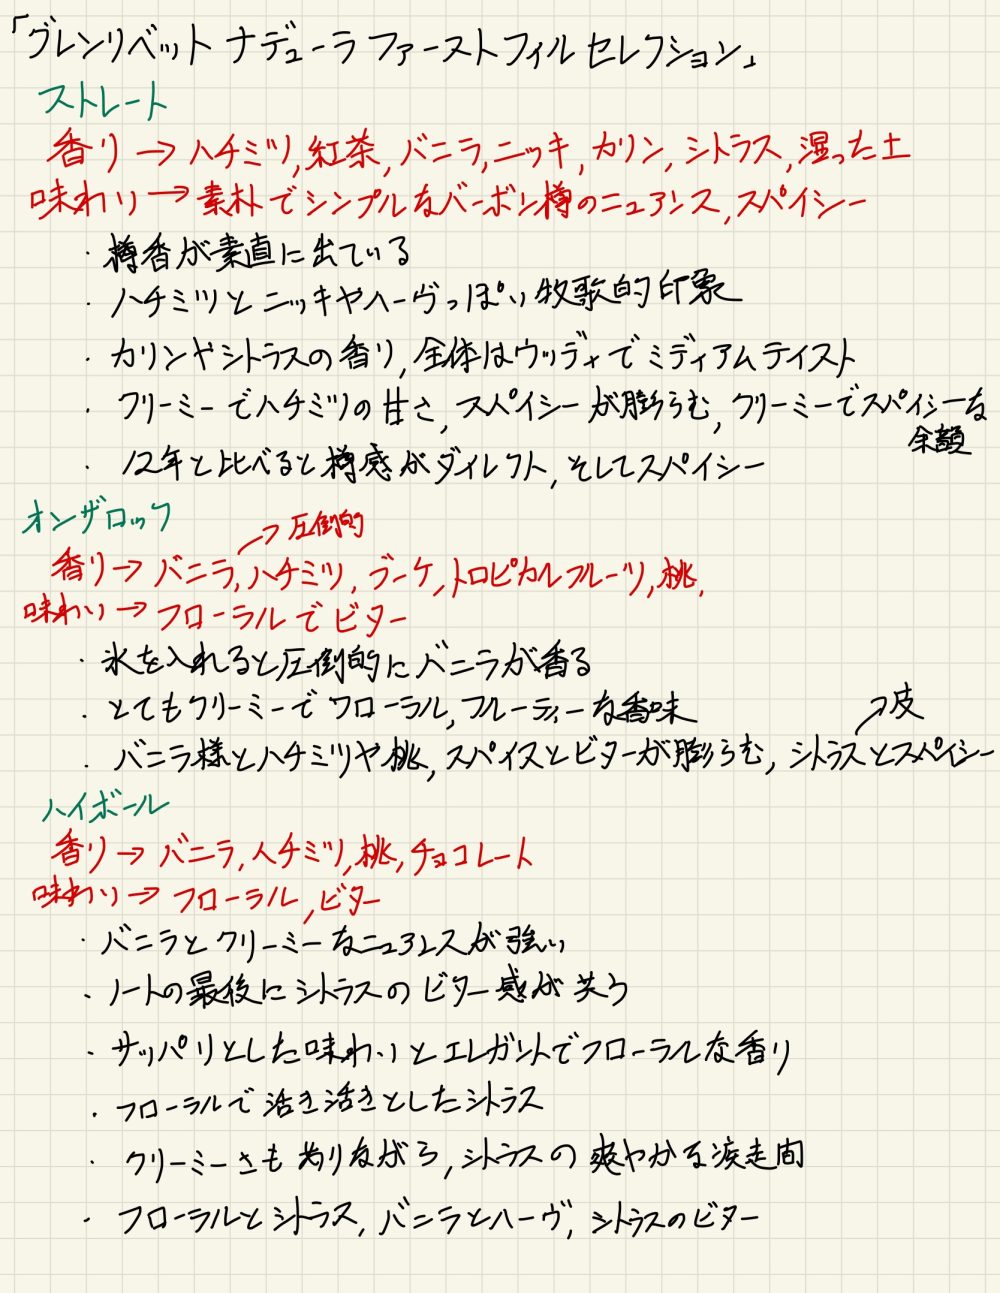 「グレンリベット ナデューラ ファーストフィル セレクション」
ストレート
香り→ハチミツ,紅茶,バニラ,ニッキ,カリン,シトラス,湿った土
味わい→素朴でシンプルなバーボン樽のニュアンス,スパイシー
・樽香が素直に出ている
・ハチミツとニッキやハーヴっぽい牧歌的印象
・カリンやシトラスの香り,全体はウッディでミディアムテイスト
・クリーミーでハチミツの甘さ,スパイシーが膨らむ,クリーミーでスパイシーな
余韻
・12年と比べると樽感がダイレクト,そしてスパイシー
オンザロック
→圧倒的
香り→バニラ,ハチミツ,ブーケ,トロピカルフルーツ,桃,
味わい→フローラルでビター
・氷を入れると圧倒的にバニラが香る
・とてもクリーミーでフローラル,フルーティーな香味
→皮
・バニラ様とハチミツや桃,スパイスとビターが膨らむ,シトラスとスパイシー
ハイボール
香り→バニラ,ハチミツ,桃,チョコレート
味わい→フローラル,ビター
・バニラとクリーミーなニュアンスが強い
・ノートの最後にシトラスのビター感が
・サッパリとした味わいとエレガントでフローラルな香り
・フローラルで活き活きとしたシトラス
・クリーミーさもありながら,シトラスの爽やかな疾走間
・フローラルとシトラス,バニラとハーヴ,シトラスのビター